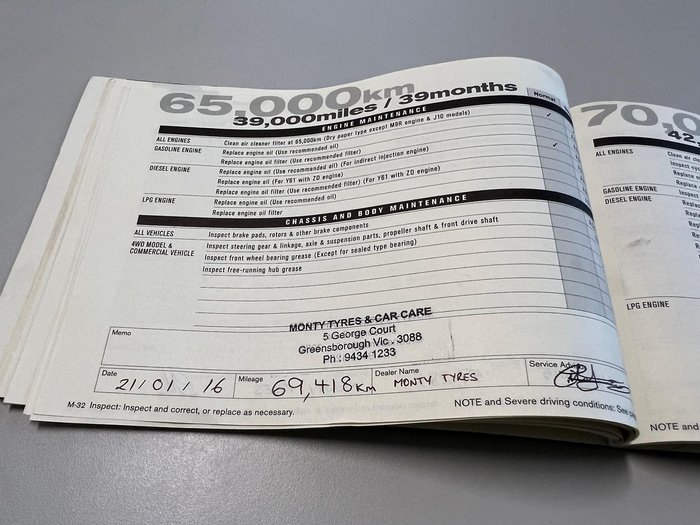 65,000km
39,000miles / 39months
Normal
ENGINE MAINTENANCE
ALL ENGINES Clean air cleaner filter at 65,000km (Dry paper type except MBR engine & J10 models) ✓
GASOLINE ENGINE Replace engine oil (Use recommended oil)
Replace engine oil filter (Use recommended filter) ✓
DIESEL ENGINE Replace engine oil (Use recommended oil) (For indirect injection engine)
Replace engine oil (For Y61 with ZD engine)
Replace engine oil filter (Use recommended filter) (For Y61 with ZD engine)
LPG ENGINE Replace engine oil (Use recommended oil)
Replace engine oil filter
CHASSIS AND BODY MAINTENANCE
ALL VEHICLES Inspect brake pads, rotors & other brake components
4WD MODEL & Inspect steering gear & linkage, axle & suspension parts, propeller shaft & front drive shaft
COMMERCIAL VEHICLE Inspect front wheel bearing grease (Except for sealed type bearing)
Inspect free-running hub grease
MONTY TYRES & CAR CARE
5 George Court
Greensborough Vic. 3088
Ph: 9434 1233
Memo
Date 21/01/16 Mileage 69,418km Dealer Name MONTY TYRES Service Adv
M-32 Inspect: Inspect and correct, or replace as necessary.
NOTE and Severe driving conditions: See
70,0
42,
ALL ENGINES Clean air cle
Inspect
Replace
Replace
GASOLINE ENGINE
DIESEL ENGINE
LPG ENGINE
NOTE and